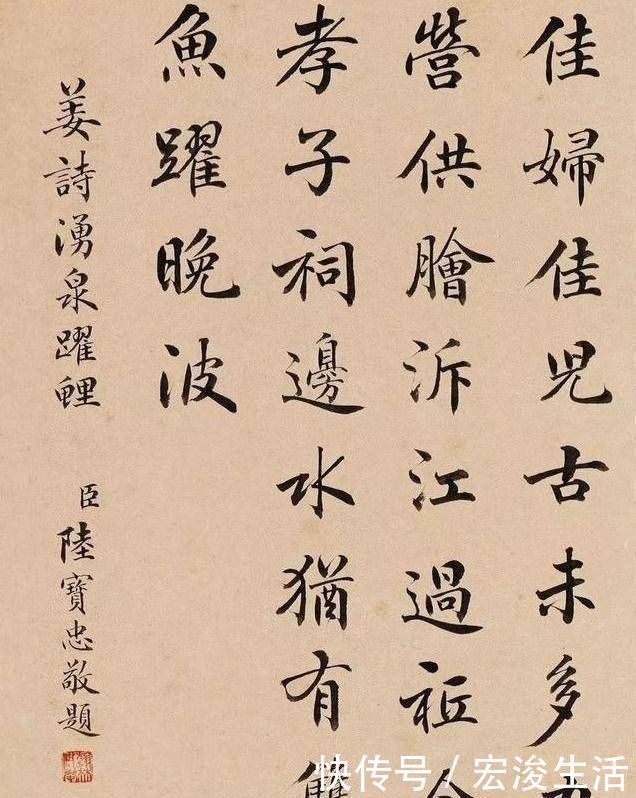 佳婦佳兒古未多
營供膾泝江過祗今
孝子祠邊水猶有雙
魚躍晚波
姜詩湧泉躍鯉
臣陸寶忠敬題
快传号/宏浚生活